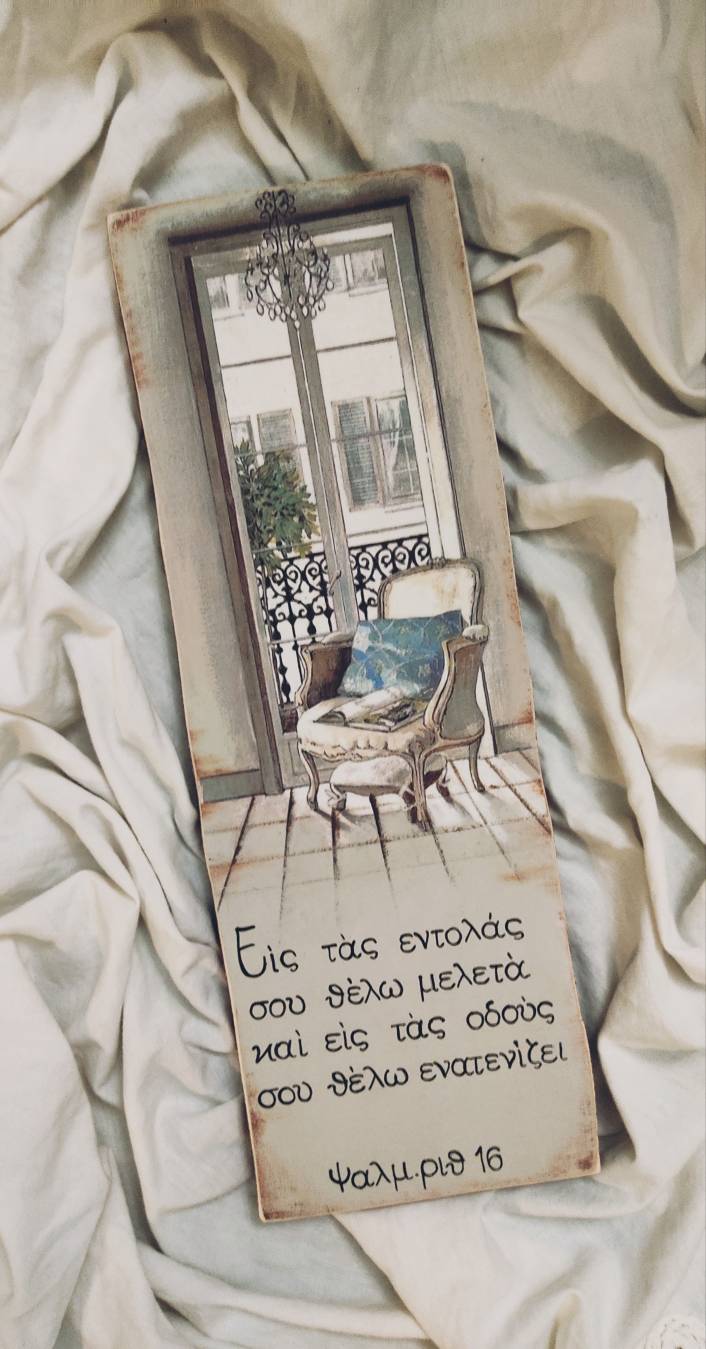 Εὶς τὰς εντολάς
σου θὲλω μελετὰ
καὶ εὶς τὰς οδοὺς
σου θὲλω ενατενἰζει
ψαλμ.ριθ 16